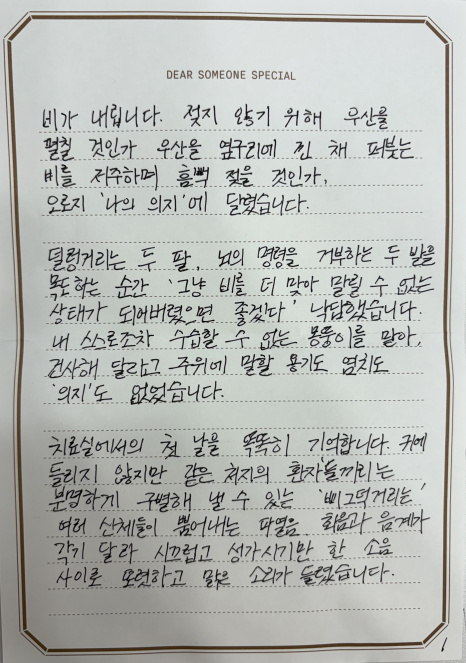 DEAR SOMEONE SPECIAL
비가 내립니다. 젖지 않기 위해 우산을
펼칠 것인가 우산을 옆구리에 낀 채 퍼붓는
비를 저주하며 흠뻑 젖을 것인가,
오로지 '나의 의지'에 달렸습니다.
덜렁거리는 두 팔, 뇌의 명령을 거부하는 두 발을
목도하는 순간 '그냥 비를 더 맞아 말릴 수 없는
상태가 되어버렸으면 좋겠다' 낙담했습니다.
내 스스로조차 수습할 수 없는 몸뚱이를 말아,
건사해 달라고 주위에 말할 용기도 염치도
'의지'도 없었습니다.
치료실에서의 첫 날을 똑똑히 기억합니다. 귀에
들리지 않지만 같은 처지의 환자들끼리는
분명하게 구별해 낼 수 있는 '삐그덕거리는'
여러 신체들이 뿜어내는 파열음. 화음과 음계가
각기 달라 시끄럽고 성가시기만 한 소음
사이로 또렷하고 맑은 소리가 들렸습니다.
1